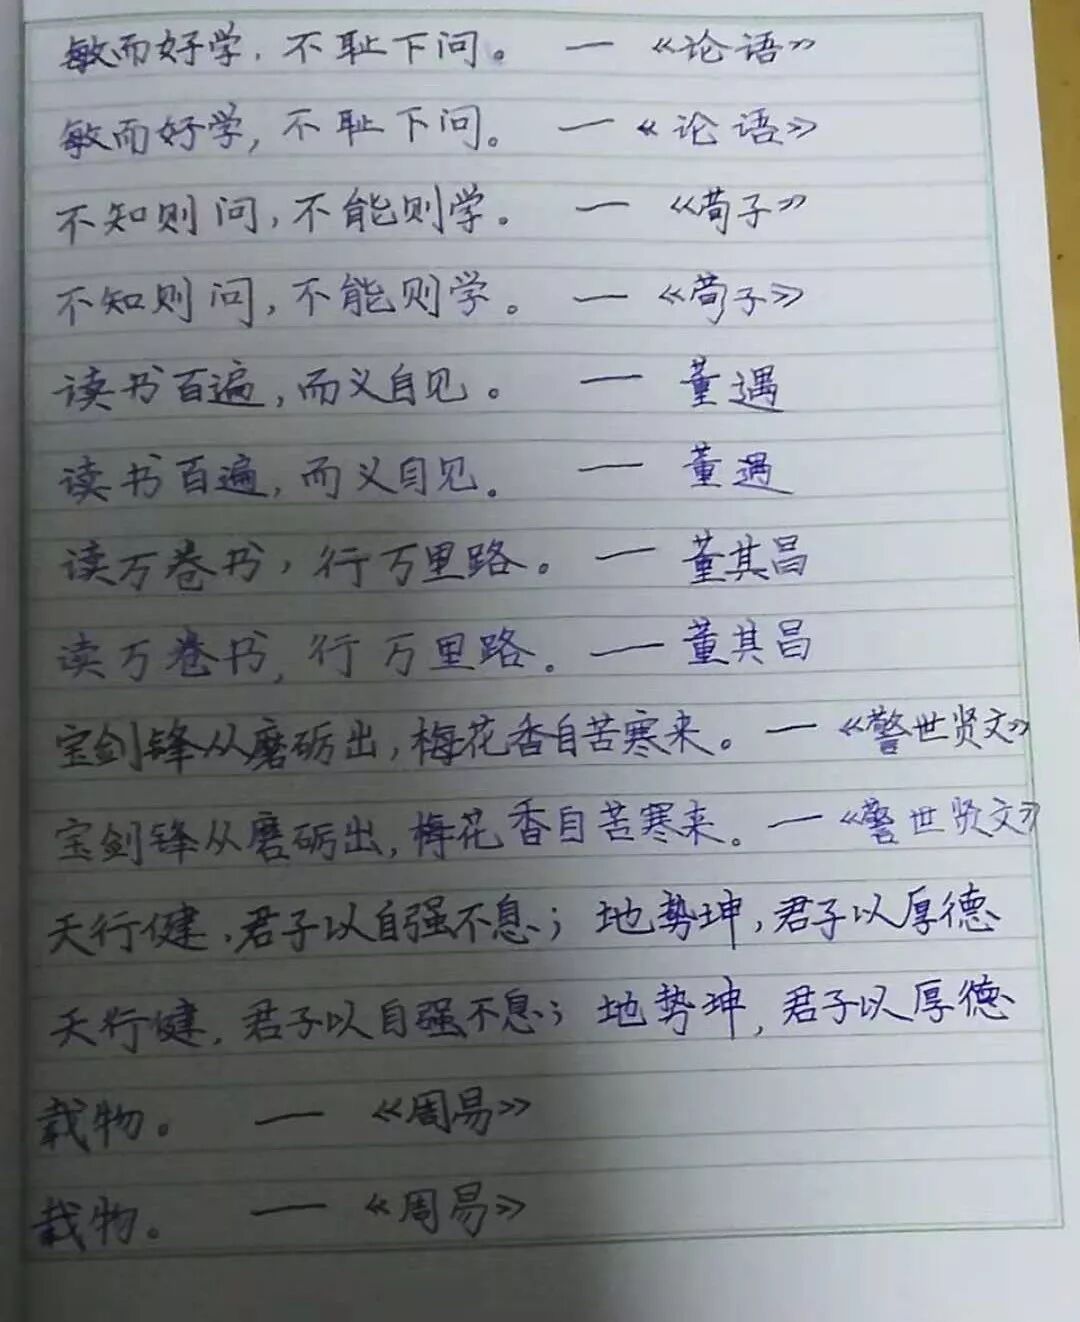 敏而好学，不耻下问。 — 《论语》
敏而好学，不耻下问。 — 《论语》
不知则问，不能则学。 — 《荀子》
不知则问，不能则学。 — 《荀子》
读书百遍，而义自见。 — 董遇
读书百遍，而义自见。 — 董遇
读万卷书，行万里路。 — 董其昌
读万卷书，行万里路。 — 董其昌
宝剑锋从磨砺出，梅花香自苦寒来。 — 《警世贤文》
宝剑锋从磨砺出，梅花香自苦寒来。 — 《警世贤文》
天行健，君子以自强不息；地势坤，君子以厚德
天行健，君子以自强不息；地势坤，君子以厚德
载物。 — 《周易》
载物。 — 《周易》